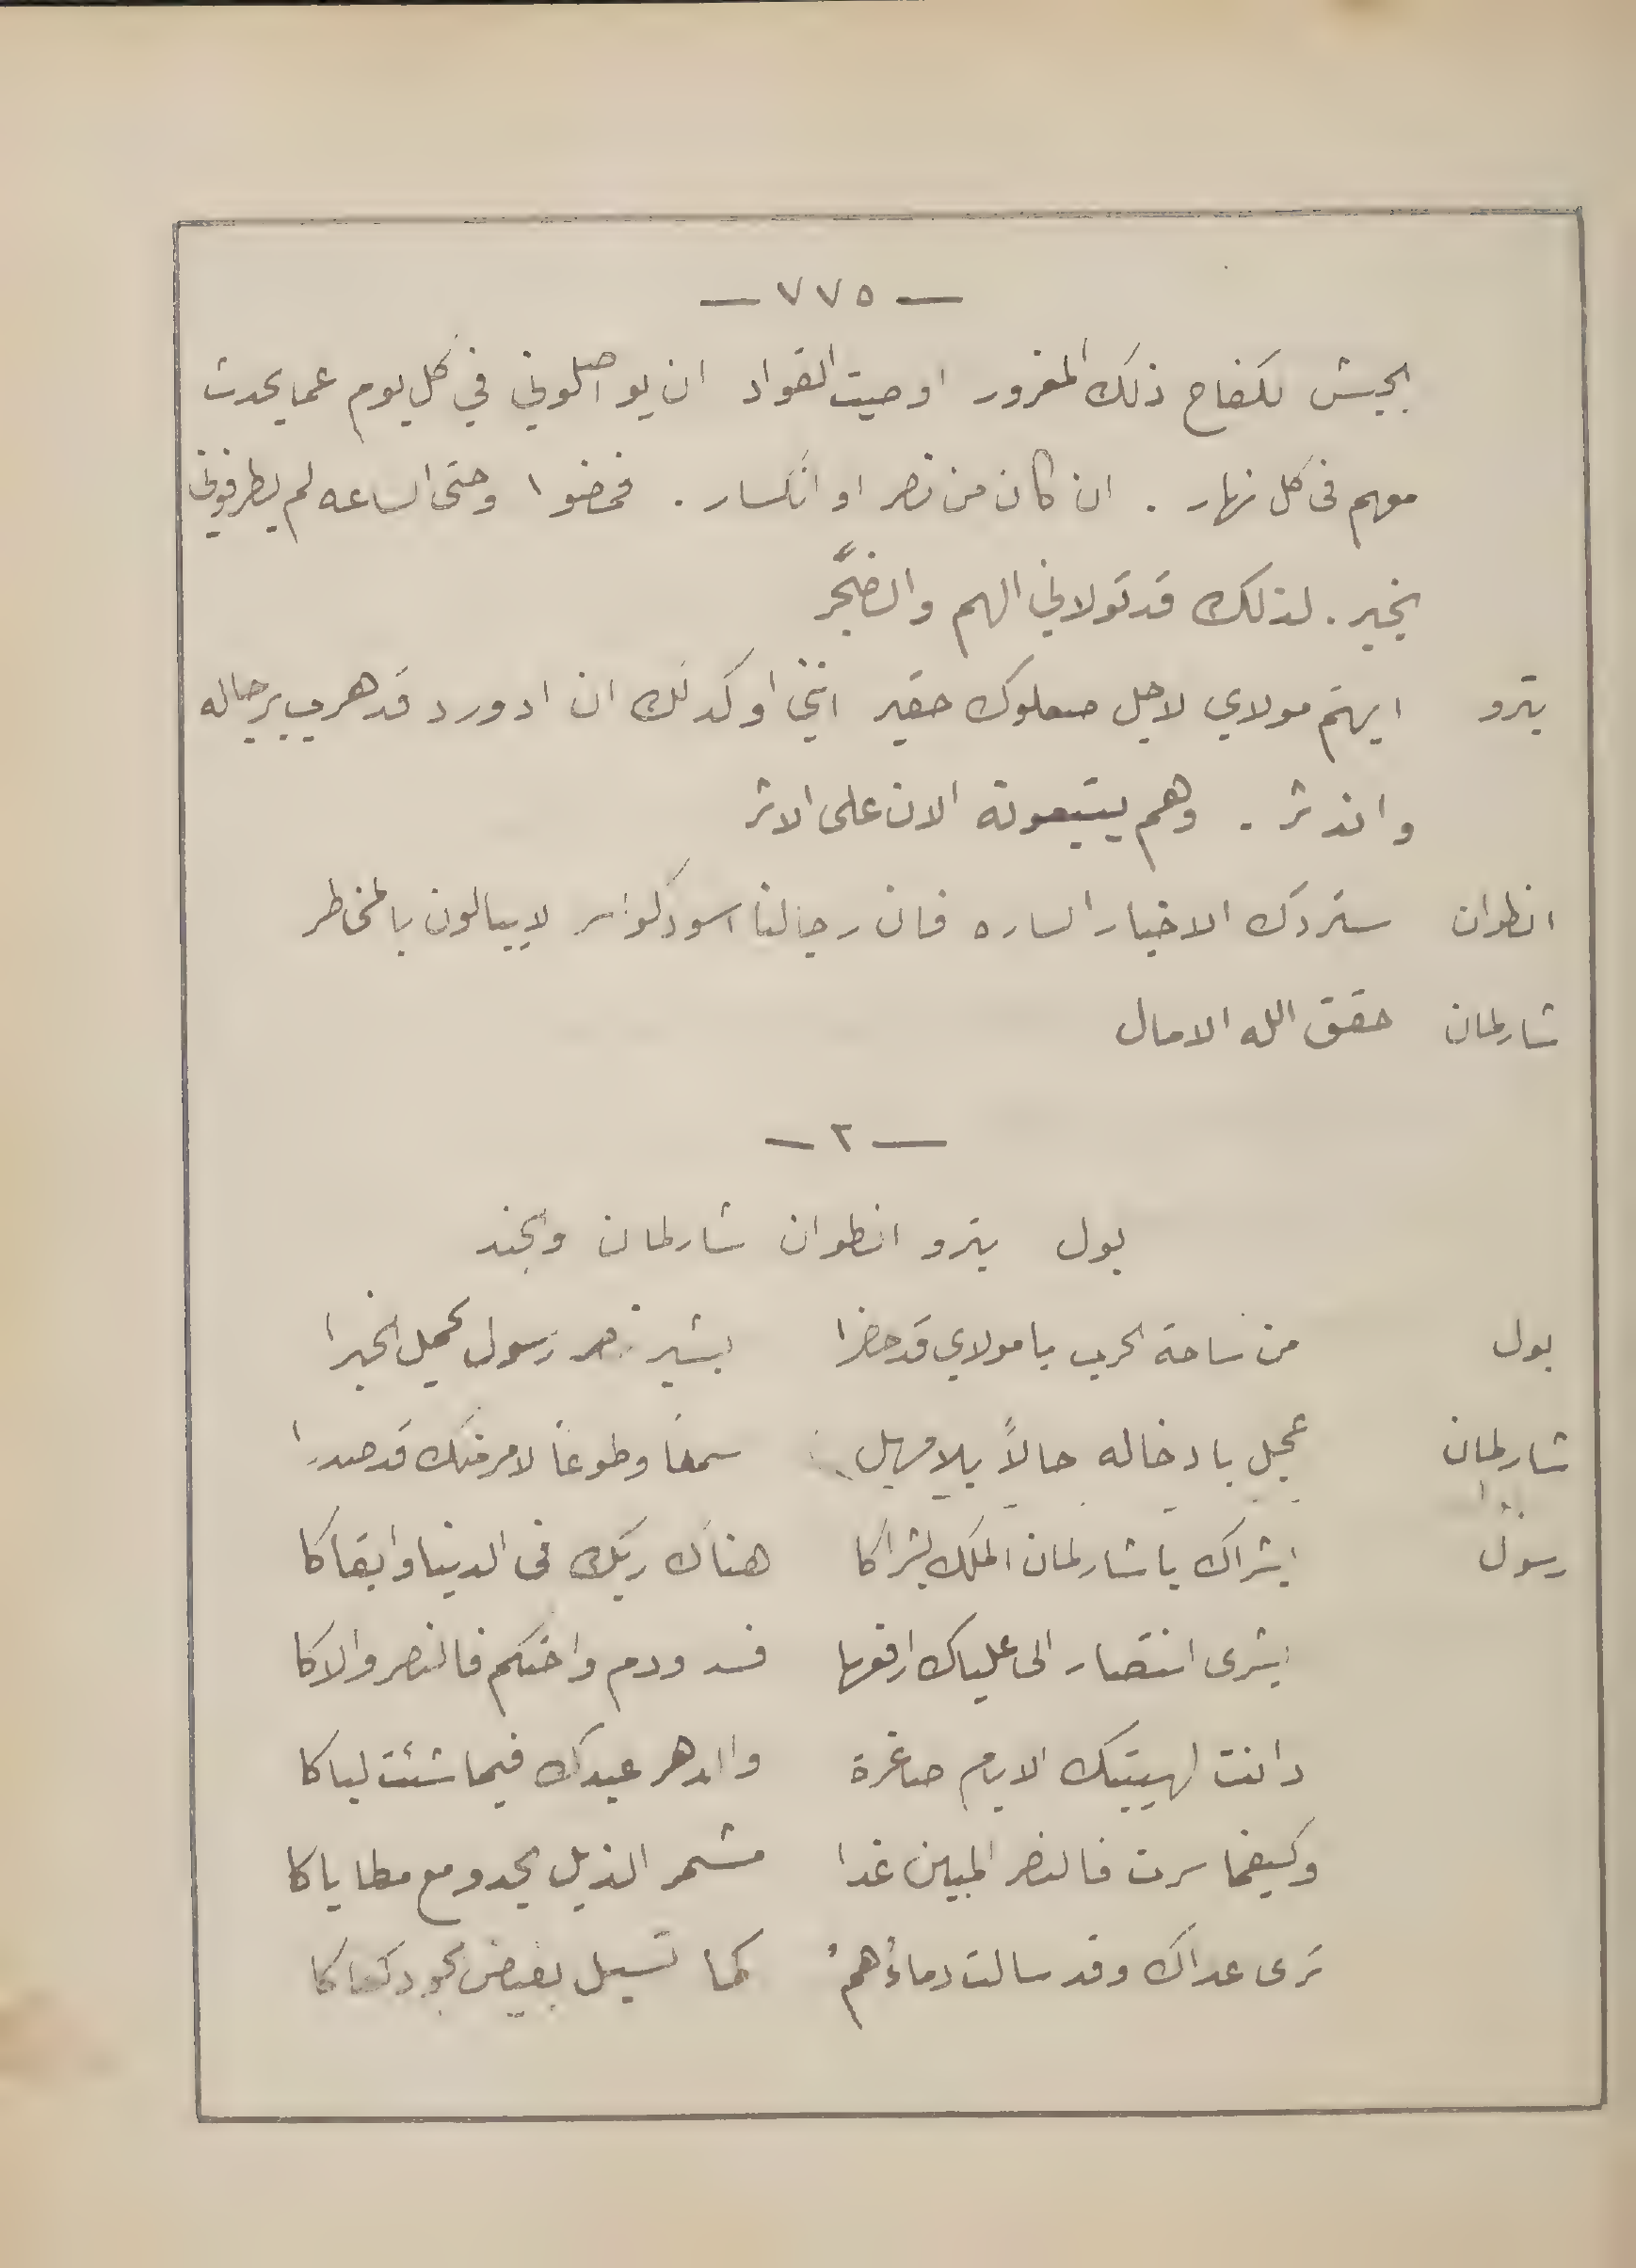 — ٧٧٥ —
الجيش لكفاح ذلك المغرور اوصيت القواد ان يواصلوني في كل يوم عما يحدث
معهم في كل نهار . ان كان من نصر او انكسار . فمضوا وحتى الساعه لم يطرفوني
بخبر . لذلك قد تولاني الهم والضجَّر
بترو ايهتم مولاي لاجل صعلوك حقير انني اوكد لك ان ادورد قد هرب برجاله
واندثر . وهم يتبعونه الان على الاثر
انطوان ستردك الاخبار الساره فان رجالنا اسود كواسر لا يبالون بالمخاطر
شارلمان حقق الله الامال
— ٢ —
بول بترو انطوان شارلمان والجند
بول من ساحة الحرب يا مولاي قد حضرا بشير رسول يحمل الخبرا
شارلمان عجل بادخاله حالاً بلا مهل سمعاً وطوعاً لامر منك قد صدرا
رسول ابشراك يا شارلمان الملك بشراكا هناك ربك في الدنيا وابقاكا
بشرى انتصار الى علياك ارفعها فسد ودم واحتكم فالنصر والاكا
دانت لهيبتك الايام صاغرة والدهر عبدك فيما شئت لباكا
وكيفما سرت فالنصر المبين غدا مشمر الذيل يحدو مع مطاياكا
ترى عداك وقد سالت دماؤُهمُ كما تسيل بفيض الجود كفاكا